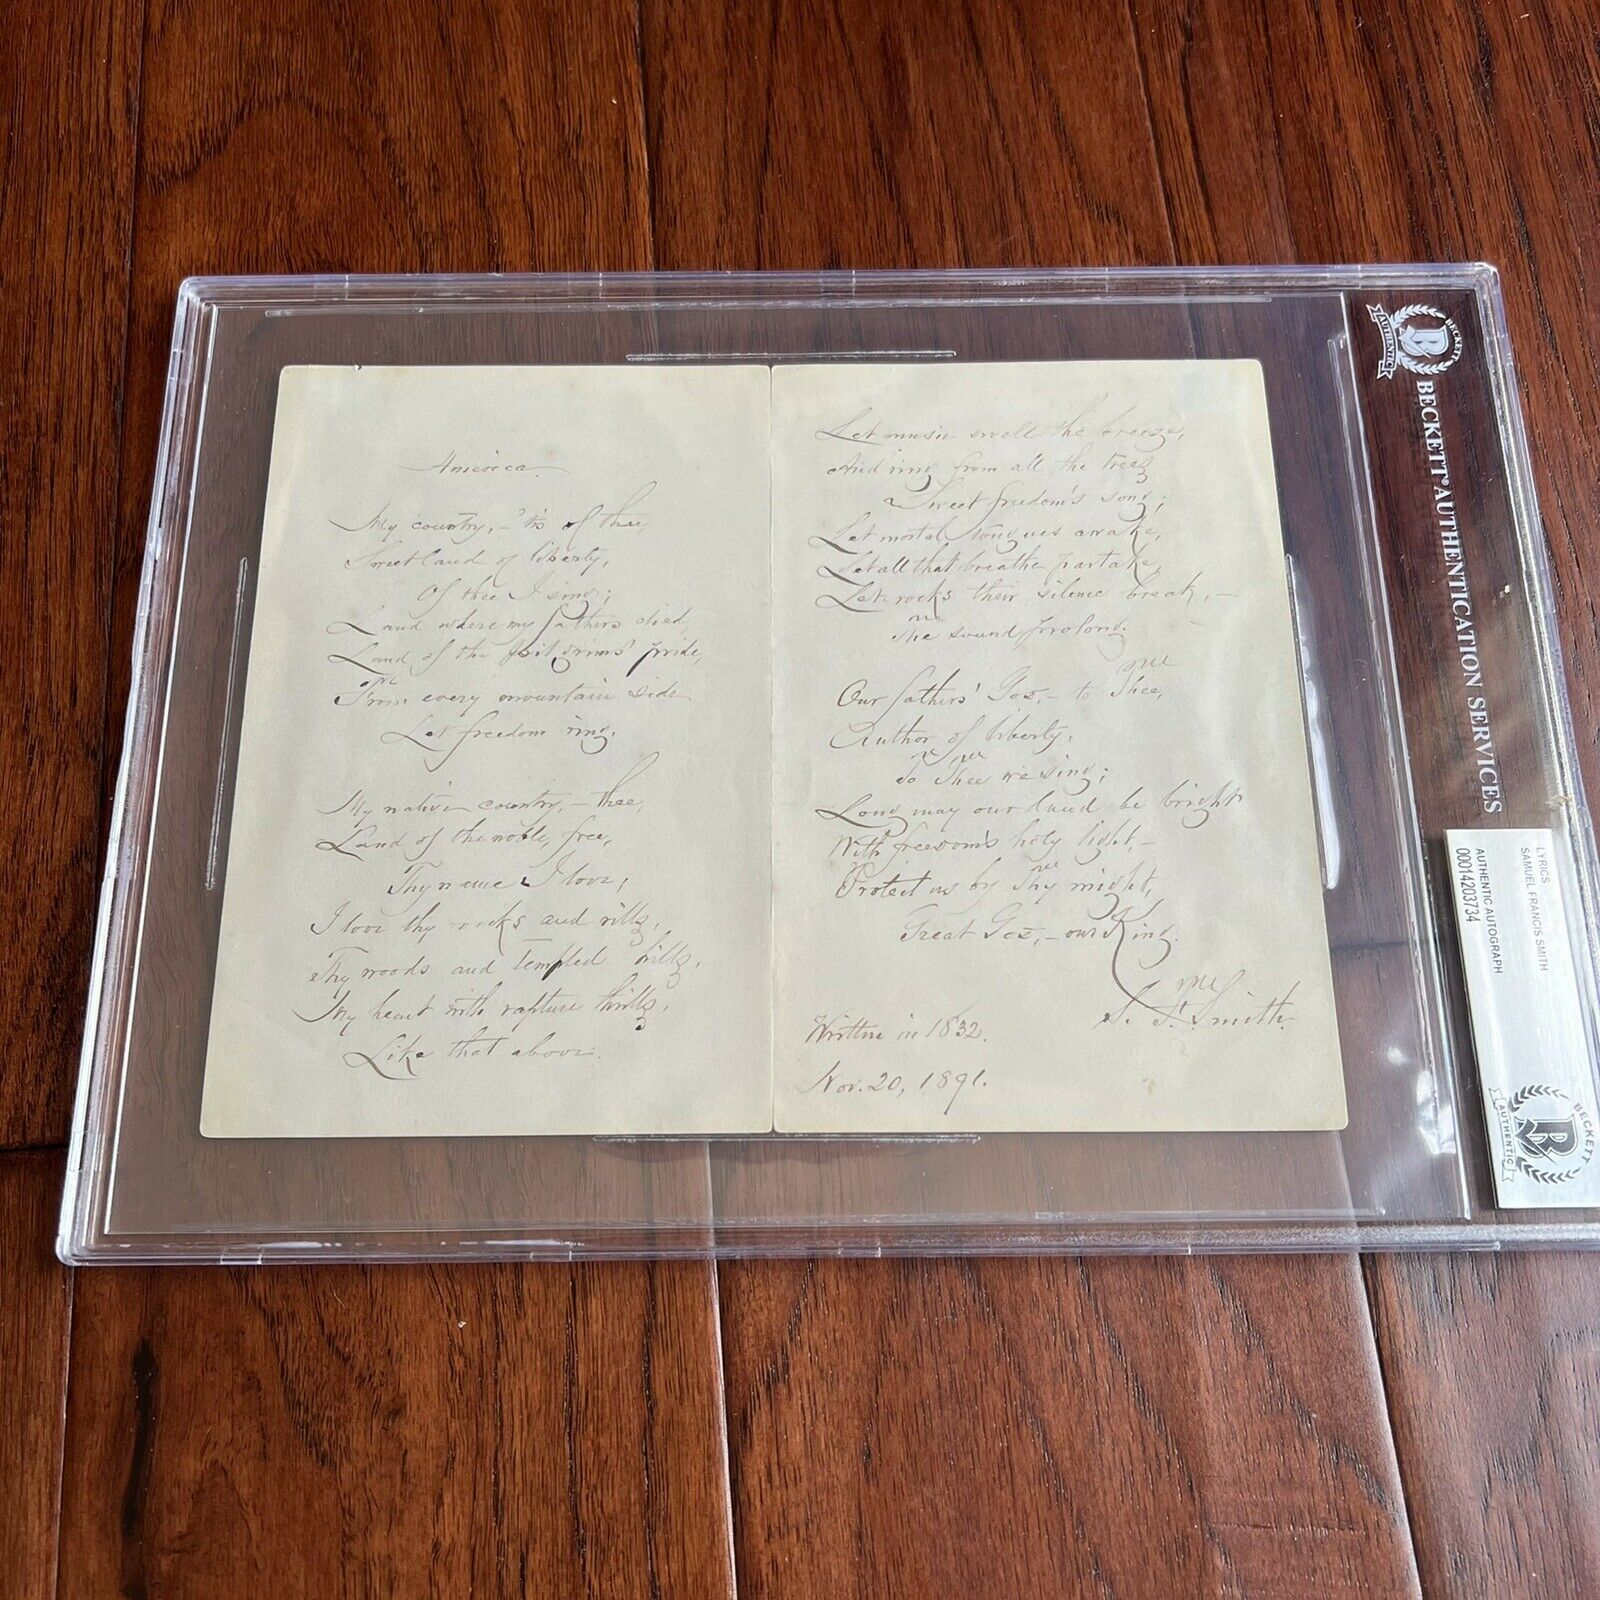 America.
My country, – 'tis of thee,
Sweet land of liberty,
Of thee I sing;
Land where my fathers died,
Land of the pilgrims' pride,
From every mountain side
Let freedom ring.
My native country, – thee,
Land of the noble, free,
Thy name I love;
I love thy rocks and rills,
Thy woods and templed hills,
My heart with rapture thrills,
Like that above.
Let music swell the breeze,
And ring from all the trees
Sweet freedom's song;
Let mortal tongues awake,
Let all that breathe partake,
Let rocks their silence break, –
The sound prolong.
Our fathers' God, – to Thee,
Author of liberty,
To Thee we sing;
Long may our land be bright
With freedom's holy light, –
Protect us by Thy might,
Great God, – our King.
S. F. Smith.
Written in 1832.
Nov. 20, 1891.
BECKETT
AUTHENTIC
BECKETT AUTHENTICATION SERVICES
LYRICS
SAMUEL FRANCIS SMITH
AUTHENTIC AUTOGRAPH
00014203734
BECKETT
AUTHENTIC